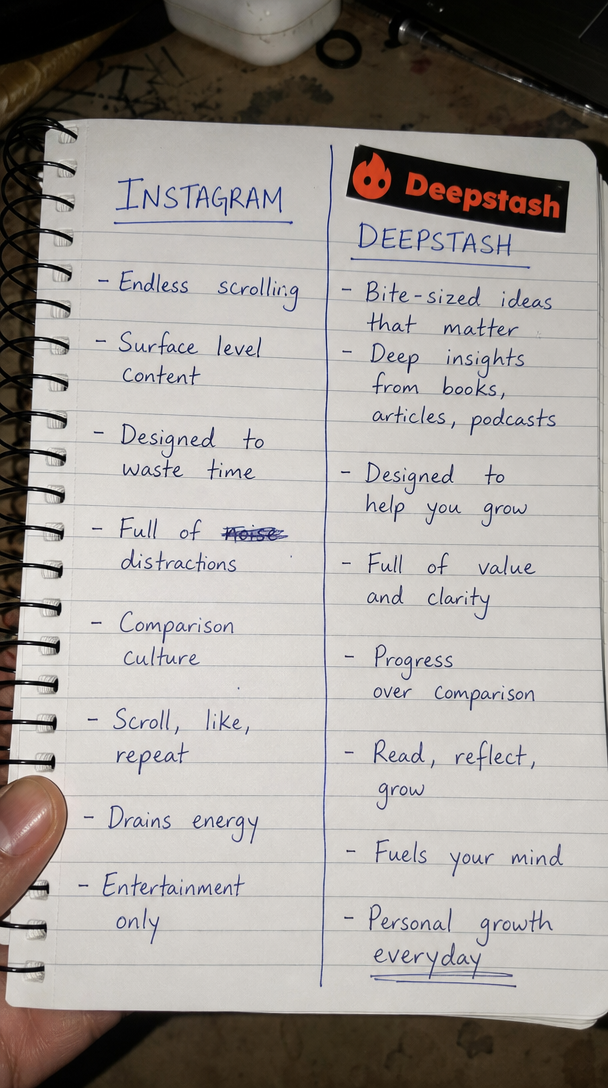 INSTAGRAM
- Endless scrolling
- Surface level
content
- Designed to
waste time
- Full of noise
distractions
- Comparison
culture
- Scroll, like,
repeat
- Drains energy
- Entertainment
only
Deepstash
DEEPSTASH
- Bite-sized ideas
that matter
- Deep insights
from books,
articles, podcasts
- Designed to
help you grow
- Full of value
and clarity
- Progress
over comparison
- Read, reflect,
grow
- Fuels your mind
- Personal growth
everyday